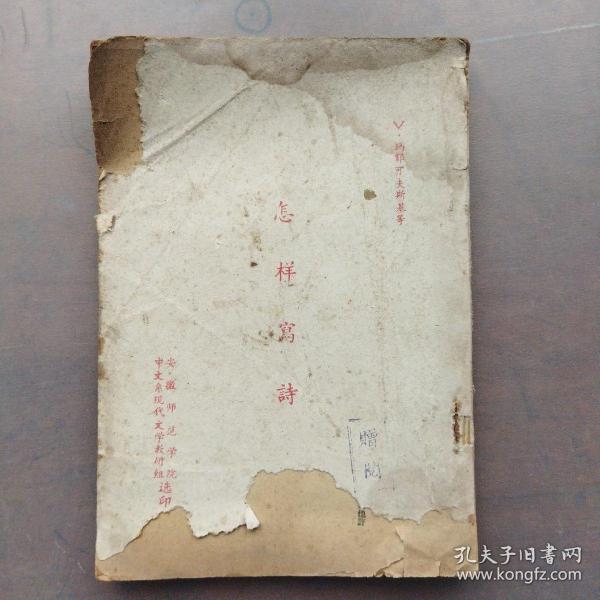 V·马耶可夫斯基等
怎样寫詩
安徽师范学院
中文系现代文学教研組选印
赠阅
孔夫子旧书网
www.kongfz.com